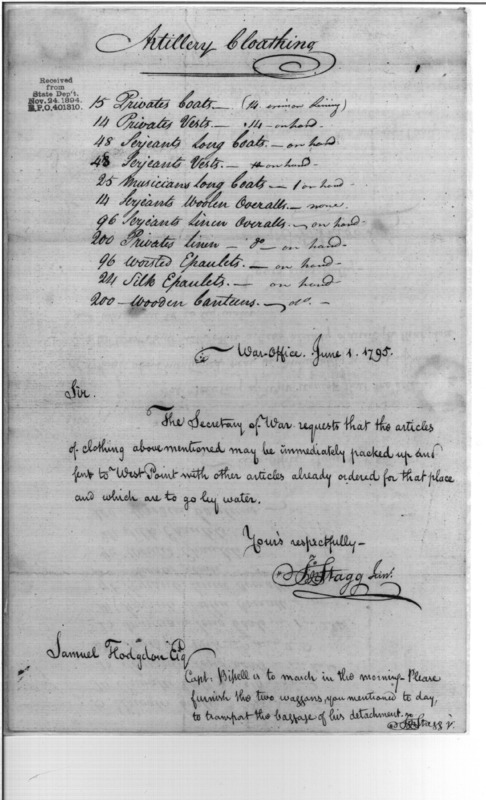 Artillery Cloathing
Received
from
State Dep't.
Nov. 24. 1894.
R.P.O. 401310.
15 Privates Coats. — (14 lining)
14 Privates Vests. — 14 on hand
48 Serjeants Long Coats. — on hand
48 Serjeants Vests. — on hand
25 Musicians Long Coats — 1 on hand
14 Serjeants Woolen Overalls. — none
96 Serjeants Linen Overalls. — on hand
200 Privates Linen — do — on hand
96 Worsted Epaulets. — on hand
24 Silk Epaulets. — on hand
200 Wooden Canteens. — do.
War-Office. June 1. 1795.
Sir.
The Secretary of War requests that the articles
of clothing above mentioned may be immediately packed up and
sent to West Point with other articles already ordered for that place
and which are to go by water.
Your's respectfully —
Jno Stagg Junr.
Samuel Hodgdon Esqr
Capt. Bissell is to march in the morning — Please
furnish the two waggons, you mentioned to day,
to transport the baggage of his detachment.
Jno Stagg Jr.